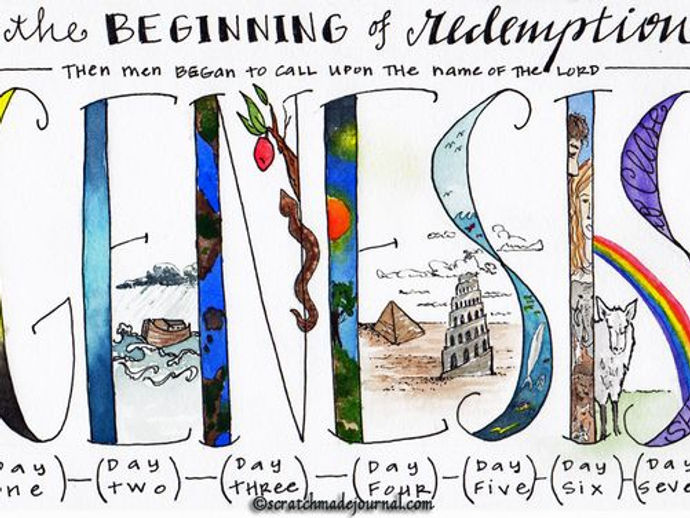 the BEGINNING of redemption
THEN MEN BEGAN TO CALL UPON THE NAME OF THE LORD
GENESIS
Day Two Day Three Day Four Day Five Day Six
©scratchmadejournal.com